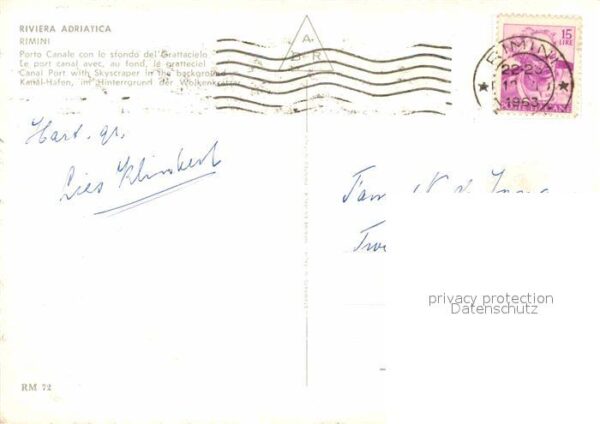 RIVIERA ADRIATICA
RIMINI
Porto Canale con lo sfondo del Grattacielo
Le port canal avec, au fond, le gratteciel
Canal Port with Skyscraper in the background
Kanal-Hafen, im Hintergrund der Wolkenkratzer
A
B R
15
LIRE
RIMINI
22-23
1963
Hart. gr.
Lies Klinkert
Fam
privacy protection
Datenschutz
RM 72